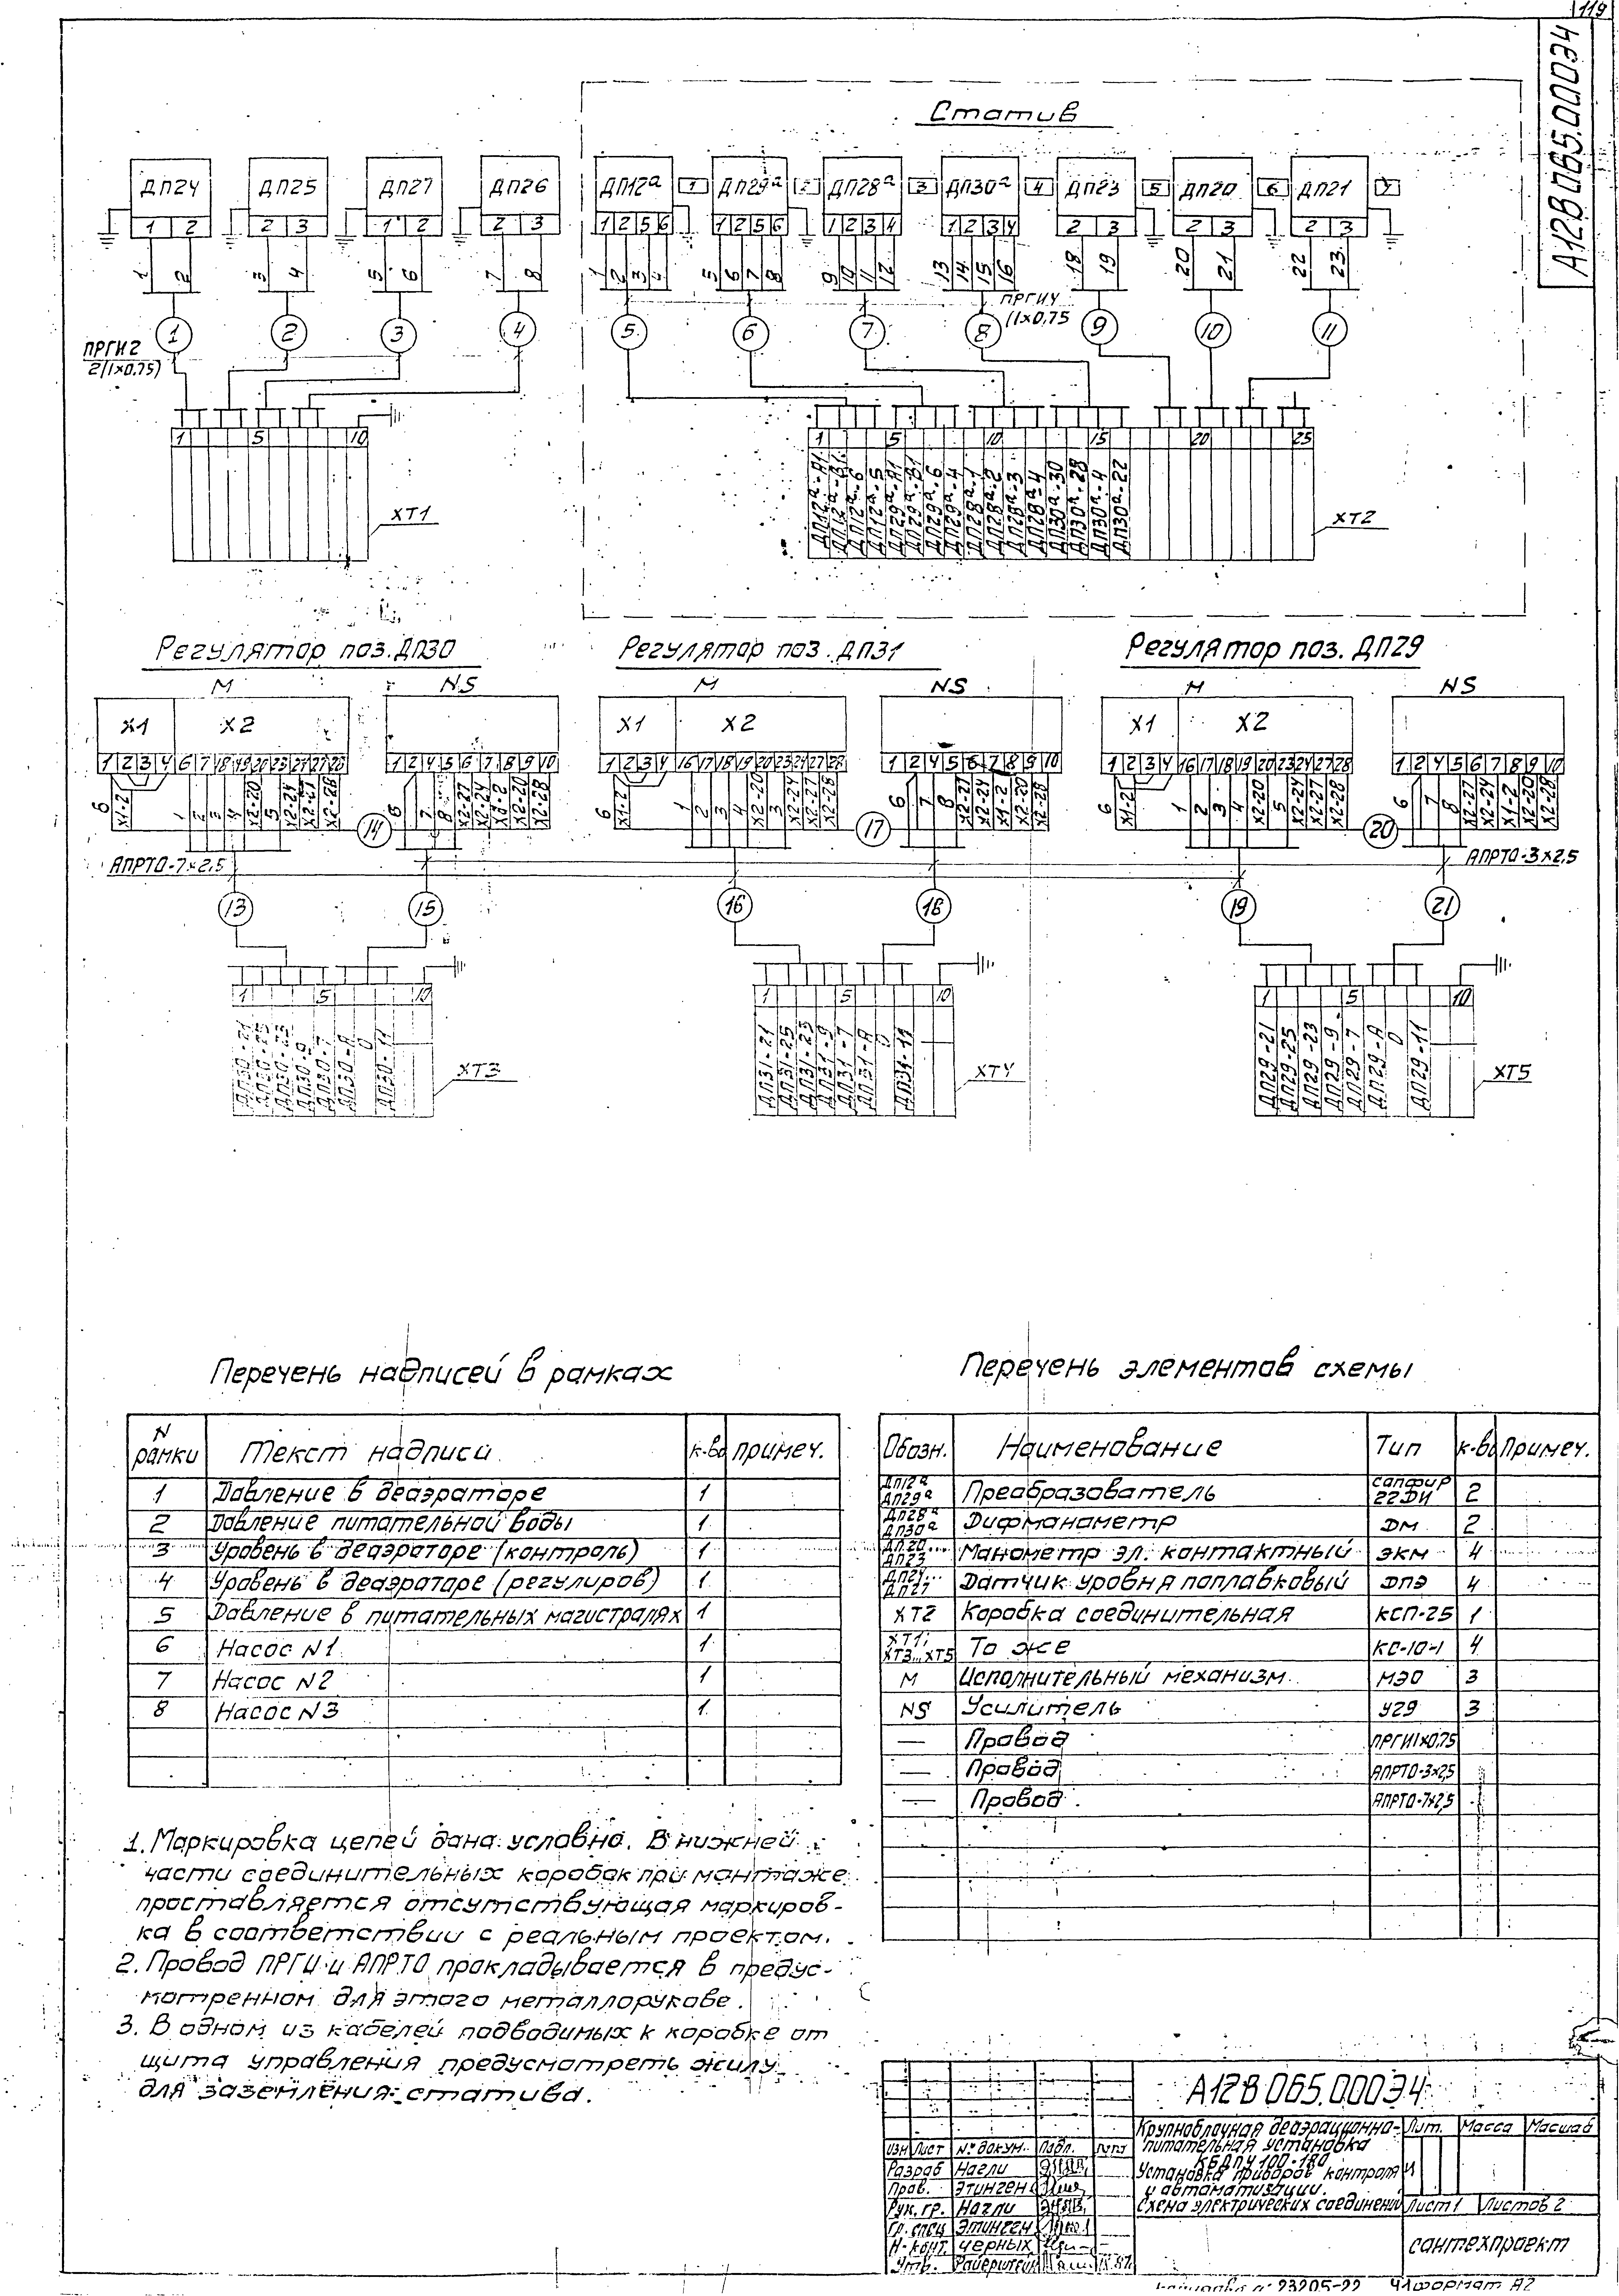 119
А12В065.000Э4
Статив
ДП24 ДП25 ДП27 ДП26 ДП12а 1 ДП29а 2 ДП28а 3 ДП30а 4 ДП23 5 ДП20 6 ДП21 7
1 2 2 3 1 2 2 3 1 2 5 6 1 2 5 6 1 2 3 4 1 2 3 4 2 3 2 3 2 3
1 2 3 4 5 6 7 8 1 2 3 4 5 6 7 8 9 10 11 12 13 14 15 16 18 19 20 21 22 23
ПРГИ2
2(1х0,75)
1 2 3 4 5 6 7 8 9 10 11
ПРГИ4
(1х0,75
1 5 10
1 5 10 15 20 25
ХТ1
ДП12а-А1
ДП12а-В1
ДП12а-6
ДП12а-5
ДП29а-А1
ДП29а-В1
ДП29а-6
ДП29а-4
ДП28а-1
ДП28а-2
ДП28а-3
ДП28а-4
ДП30а-30
ДП30а-28
ДП30а-4
ДП30а-22
ХТ2
Регулятор поз.ДП30 Регулятор поз.ДП31 Регулятор поз.ДП29
М NS М NS М NS
Х1 Х2 Х1 Х2 Х1 Х2
1 2 3 4 6 7 18 19 20 23 24 27 28
1 2 4 5 6 7 8 9 10
1 2 3 4 16 17 18 19 20 23 24 27 28
1 2 4 5 6 7 8 9 10
1 2 3 4 16 17 18 19 20 23 24 27 28
1 2 4 5 6 7 8 9 10
6 Х1-2 1 2 3 4 Х2-20 5 Х2-24 Х2-27 Х2-28
14
6 7 8 Х2-27 Х2-24 Х1-2 Х2-20 Х2-28
6 Х1-2 1 2 3 4 Х2-20 3 Х2-24 Х2-27 Х2-28
17
6 7 8 Х2-27 Х2-24 Х1-2 Х2-20 Х2-28
6 Х1-2 1 2 3 4 Х2-20 5 Х2-24 Х2-27 Х2-28
20
6 7 8 Х2-27 Х2-24 Х1-2 Х2-20 Х2-28
АПРТО-7х2,5
АПРТО-3х2,5
13 15 16 18 19 21
1 5 10 1 5 10 1 5 10
ДП30-21
ДП30-25
ДП30-23
ДП30-9
ДП30-7
ДП30-А
0
ДП30-11
ХТ3
ДП31-21
ДП31-25
ДП31-23
ДП31-9
ДП31-7
ДП31-А
0
ДП31-11
ХТ4
ДП29-21
ДП29-25
ДП29-23
ДП29-9
ДП29-7
ДП29-А
0
ДП29-11
ХТ5
Перечень надписей в рамках
N рамки Текст надписи к-во примеч.
1 Давление в деаэраторе 1
2 Давление питательной воды 1
3 Уровень в деаэраторе (контроль) 1
4 Уровень в деаэраторе (регулиров) 1
5 Давление в питательных магистралях 1
6 Насос N1 1
7 Насос N2 1
8 Насос N3 1
Перечень элементов схемы
Обозн. Наименование Тип к-во Примеч.
ДП12а ДП29а Преобразователь сапфир 22ДИ 2
ДП28а ДП30а Дифманометр ДМ 2
ДП20... ДП23 Манометр эл. контактный ЭКМ 4
ДП24... ДП27 Датчик уровня поплавковый ДПЭ 4
ХТ2 Коробка соединительная КСП-25 1
ХТ1; ХТ3...ХТ5 То же КС-10-1 4
М Исполнительный механизм МЭО 3
NS Усилитель У29 3
— Провод ПРГИ1х0,75
— Провод АПРТО-3х2,5
— Провод АПРТО-7х2,5
1. Маркировка цепей дана условно. В нижней
части соединительных коробок при монтаже
проставляется отсутствующая маркиров-
ка в соответствии с реальным проектом.
2. Провод ПРГИ и АПРТО прокладывается в предус-
мотренном для этого металлорукаве.
3. В одном из кабелей подводимых к коробке от
щита управления предусмотреть жилу
для заземления статива.
А12В065.000Э4
Крупноблочная деаэрационно-
питательная установка
КБДПУ 100-180
Установка приборов контроля и
и автоматизации.
Схема электрических соединений
Лит. Масса Масшаб
Лист 1 Листов 2
сантехпроект
Изм Лист № докум. Подп.
Разраб Нагли
Пров. Этинген
Рук. гр. Нагли
Гр. спец Этинген
Н-конт. Черных
Утв.
23205-22 Формат А2